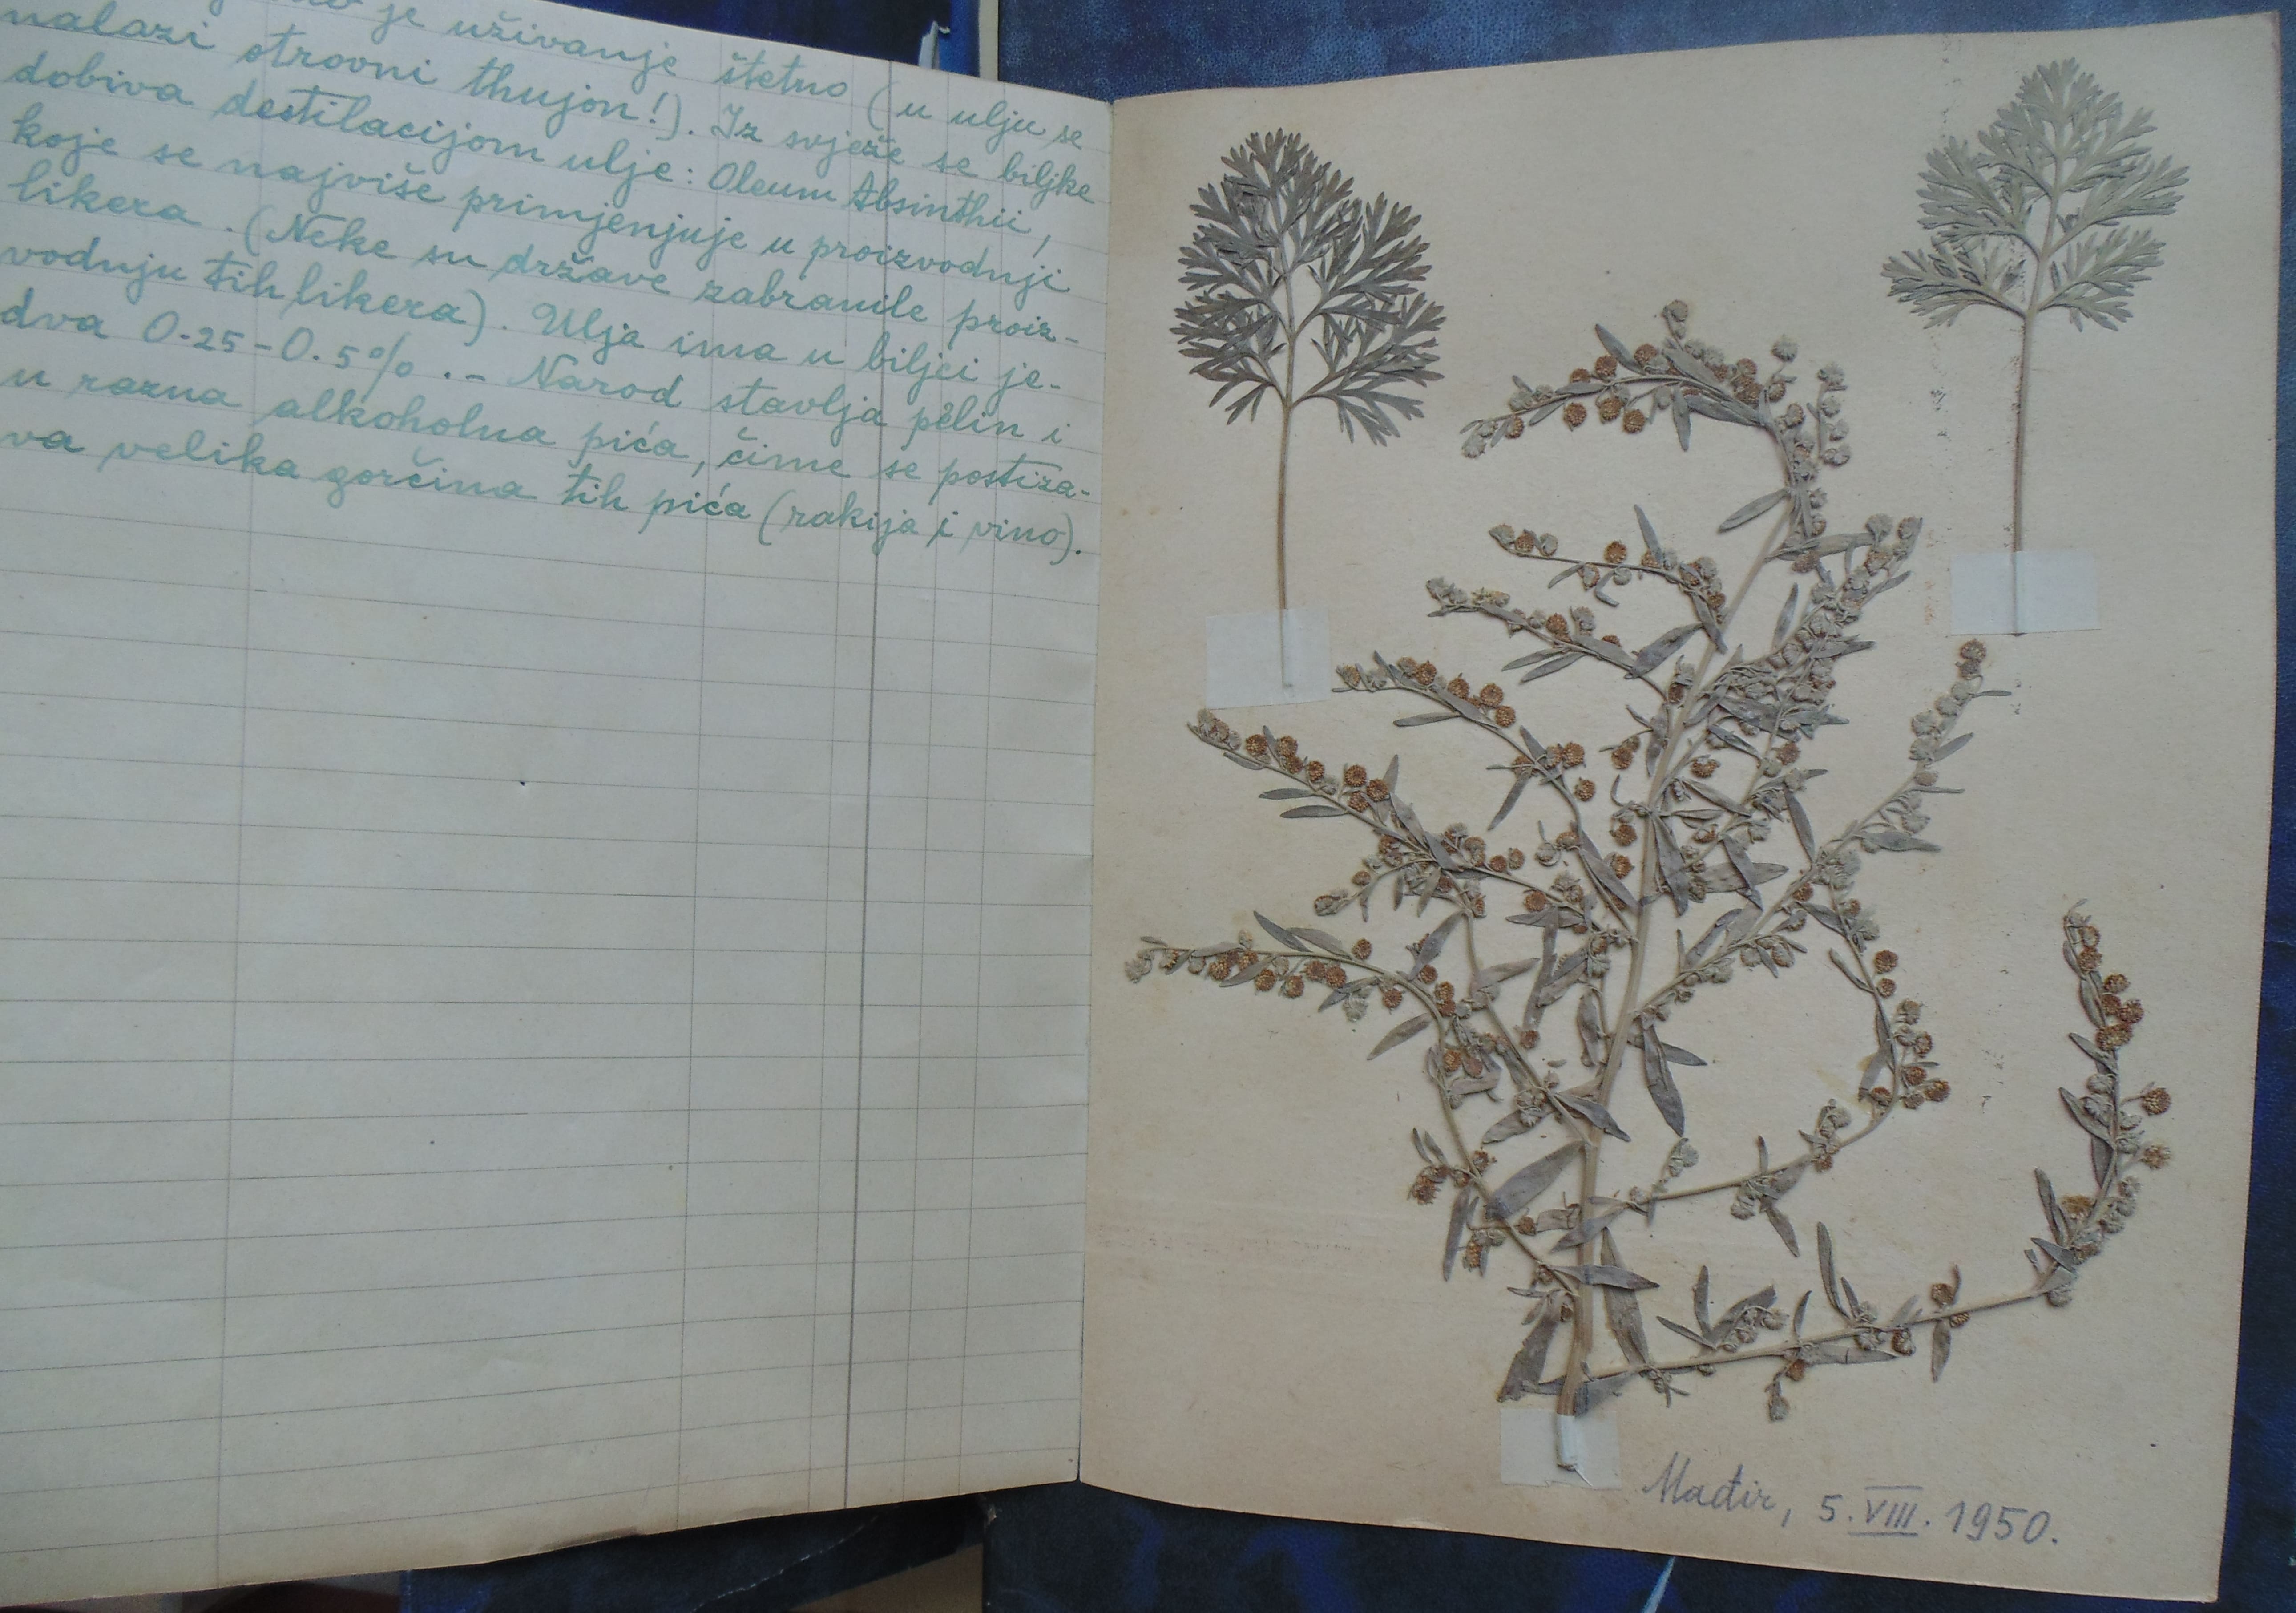 je uživanje štetno (u ulju se
nalazi otrovni thujon!). Iz svježe se biljke
dobiva destilacijom ulje: Oleum Absinthii,
koje se najviše primjenjuje u proizvodnji
likera. (Neke su države zabranile proiz-
vodnju tih likera). Ulja ima u biljci je-
dva 0.25-0.5%. - Narod stavlja pelin i
u razna alkoholna pića, čime se postiza-
va velika gorčina tih pića (rakija i vino).
Mađir, 5. VIII. 1950.